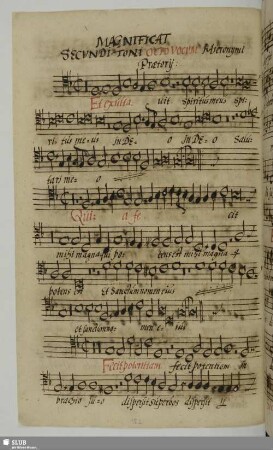 MAGNIFICAT
SECVNDI TONI OCTO VOCVM Hieronymi
Prætorij:
Et exulta vit Spiritus meus Spi:
ritus meus IN DEO IN DEO Salu
tari meo
Quia fe cit
mihi magna qui po tens est mihi magna q
potens est Et Sanctum nomen eius
et sanctum no men eius
Fecit potentiam fecit potentiam in
brachio suo dispersit superbos dispersit ij
SLUB